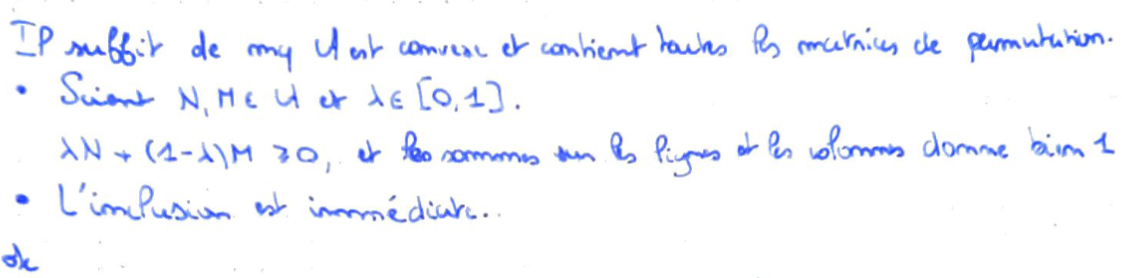 Il suffit de mq U est convexe et contient toutes les matrices de permutation.
• Soient N, M ∈ U et λ ∈ [0,1].
λN + (1-λ)M ≥ 0, et les sommes sur les lignes et les colonnes donne bien 1
• L'inclusion est immédiate..
ok